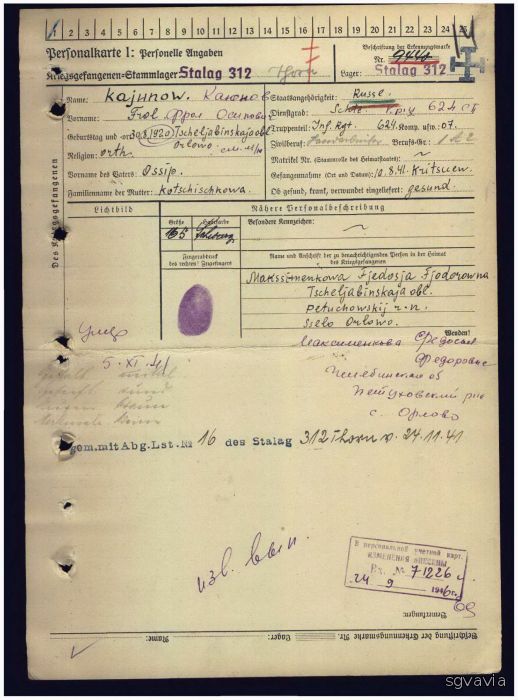 1 2 3 4 5 6 7 8 9 10 11 12 13 14 15 16 17 18 19 20 21 22 23 24 25
Personalkarte I: Personelle Angaben
Kriegsgefangenen-Stammlager: Stalag 312 Thorn
Beschriftung der Erkennungsmarke
Nr. 9440
Lager: Stalag 312
Des Kriegsgefangenen
Name: Kajunow. Каюнов
Vorname: Frol Фрол Осипов
Geburtstag und -ort 30.8.1920 Tscheljabinskaja obl.
Orlowo
Religion: orth.
Vorname des Vaters: Ossip.
Familienname der Mutter: Kotschischkowa.
Staatsangehörigkeit: Russe.
Dienstgrad: 624 СП
Truppenteil: Inf. Rgt. 624 Komp. usw.: 07.
Zivilberuf: Landarbeiter Berufs-Gr.:
Matrikel Nr. (Stammrolle des Heimatstaates): ~
Gefangennahme (Ort und Datum): 10.8.41. Kritsuew.
Ob gesund, krank, verwundet eingeliefert: gesund.
Lichtbild
Nähere Personalbeschreibung
Größe Haarfarbe Besondere Kennzeichen:
165 ~
Fingerabdruck
des rechten Zeigefingers
Name und Anschrift der zu benachrichtigenden Person in der Heimat
des Kriegsgefangenen
Makssimenkowa Fjedosja Fjodorowna
Tscheljabinskaja obl.
Petuchowskij r-n.
Sselo Orlowo.
Wenden!
Умер
5. XI. 41
Максименкова Федосья
Федоровна
Челябинская об
Петуховский р-н
с. Орлово
gem. mit Abg. Lst. № 16 des Stalag 312 Thorn v. 24.11.41
изв. вып.
В персональной учетной карт.
ИЗМЕНЕНИЯ ВНЕСЕНЫ
Вх. № 71226
24 9 1946 г.
Bemerkungen:
Beschriftung der Erkennungsmarke Nr. Lager: Name:
sgvavia